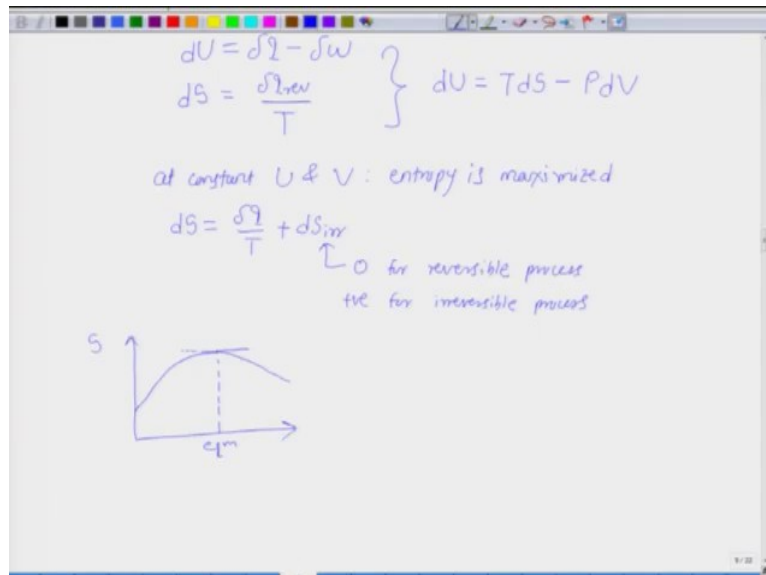 dU = δq - δw
dS = δq_rev / T } dU = TdS - PdV
at constant U & V : entropy is maximized
dS = δq / T + dS_irr
0 for reversible process
+ve for irreversible process
S
eqm
9/22